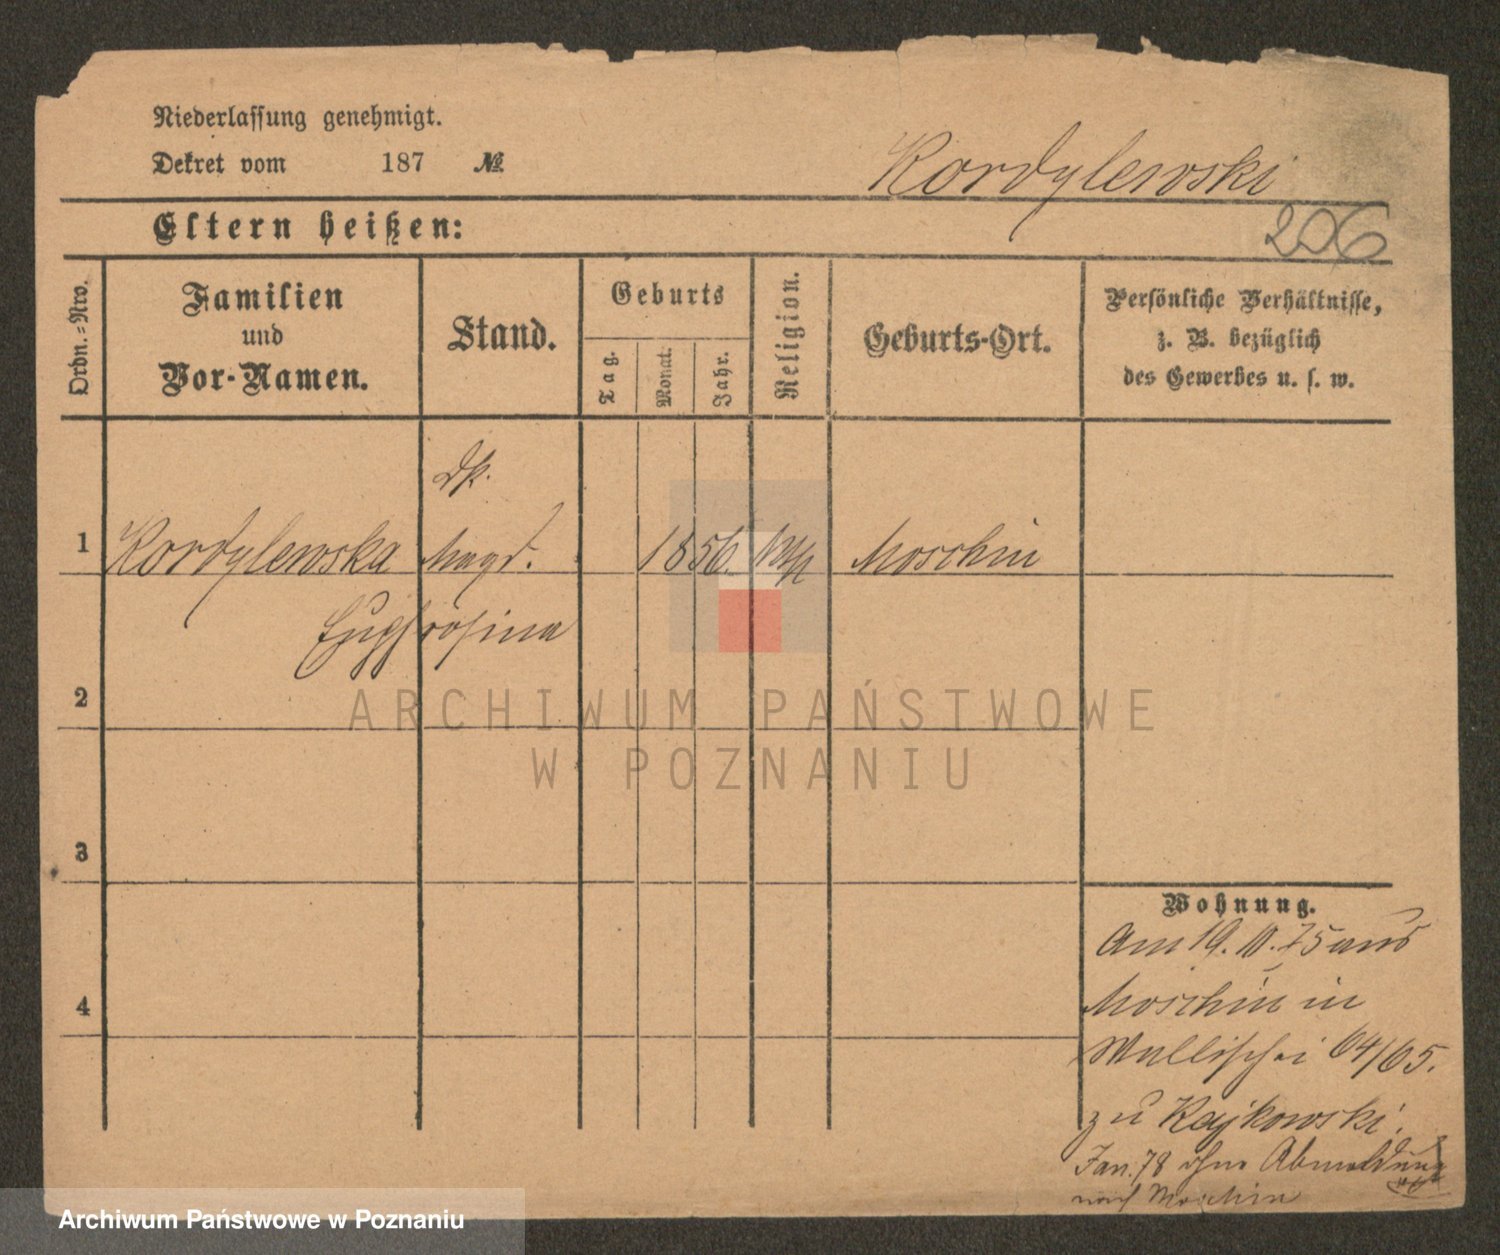 Niederlassung genehmigt.
Dekret vom 187 №
Kordylewski
Eltern heißen:
206
Ordn.=Nro.
Familien
und
Vor-Namen.
Stand.
Geburts
Tag.
Monat.
Jahr.
Religion.
Geburts-Ort.
Persönliche Verhältnisse,
z. B. bezüglich
des Gewerbes u. s. w.
1 Kordylewska Magd. 1856 Moschin
Euphrosina
2
3
4
Wohnung.
Am 19. 75 aus
Moschin in
Wallischei 64/65.
zu Rajkowski.
Jan. 78 ohne Abmeldung
nach Moschin
ARCHIWUM PAŃSTWOWE
W POZNANIU
Archiwum Państwowe w Poznaniu